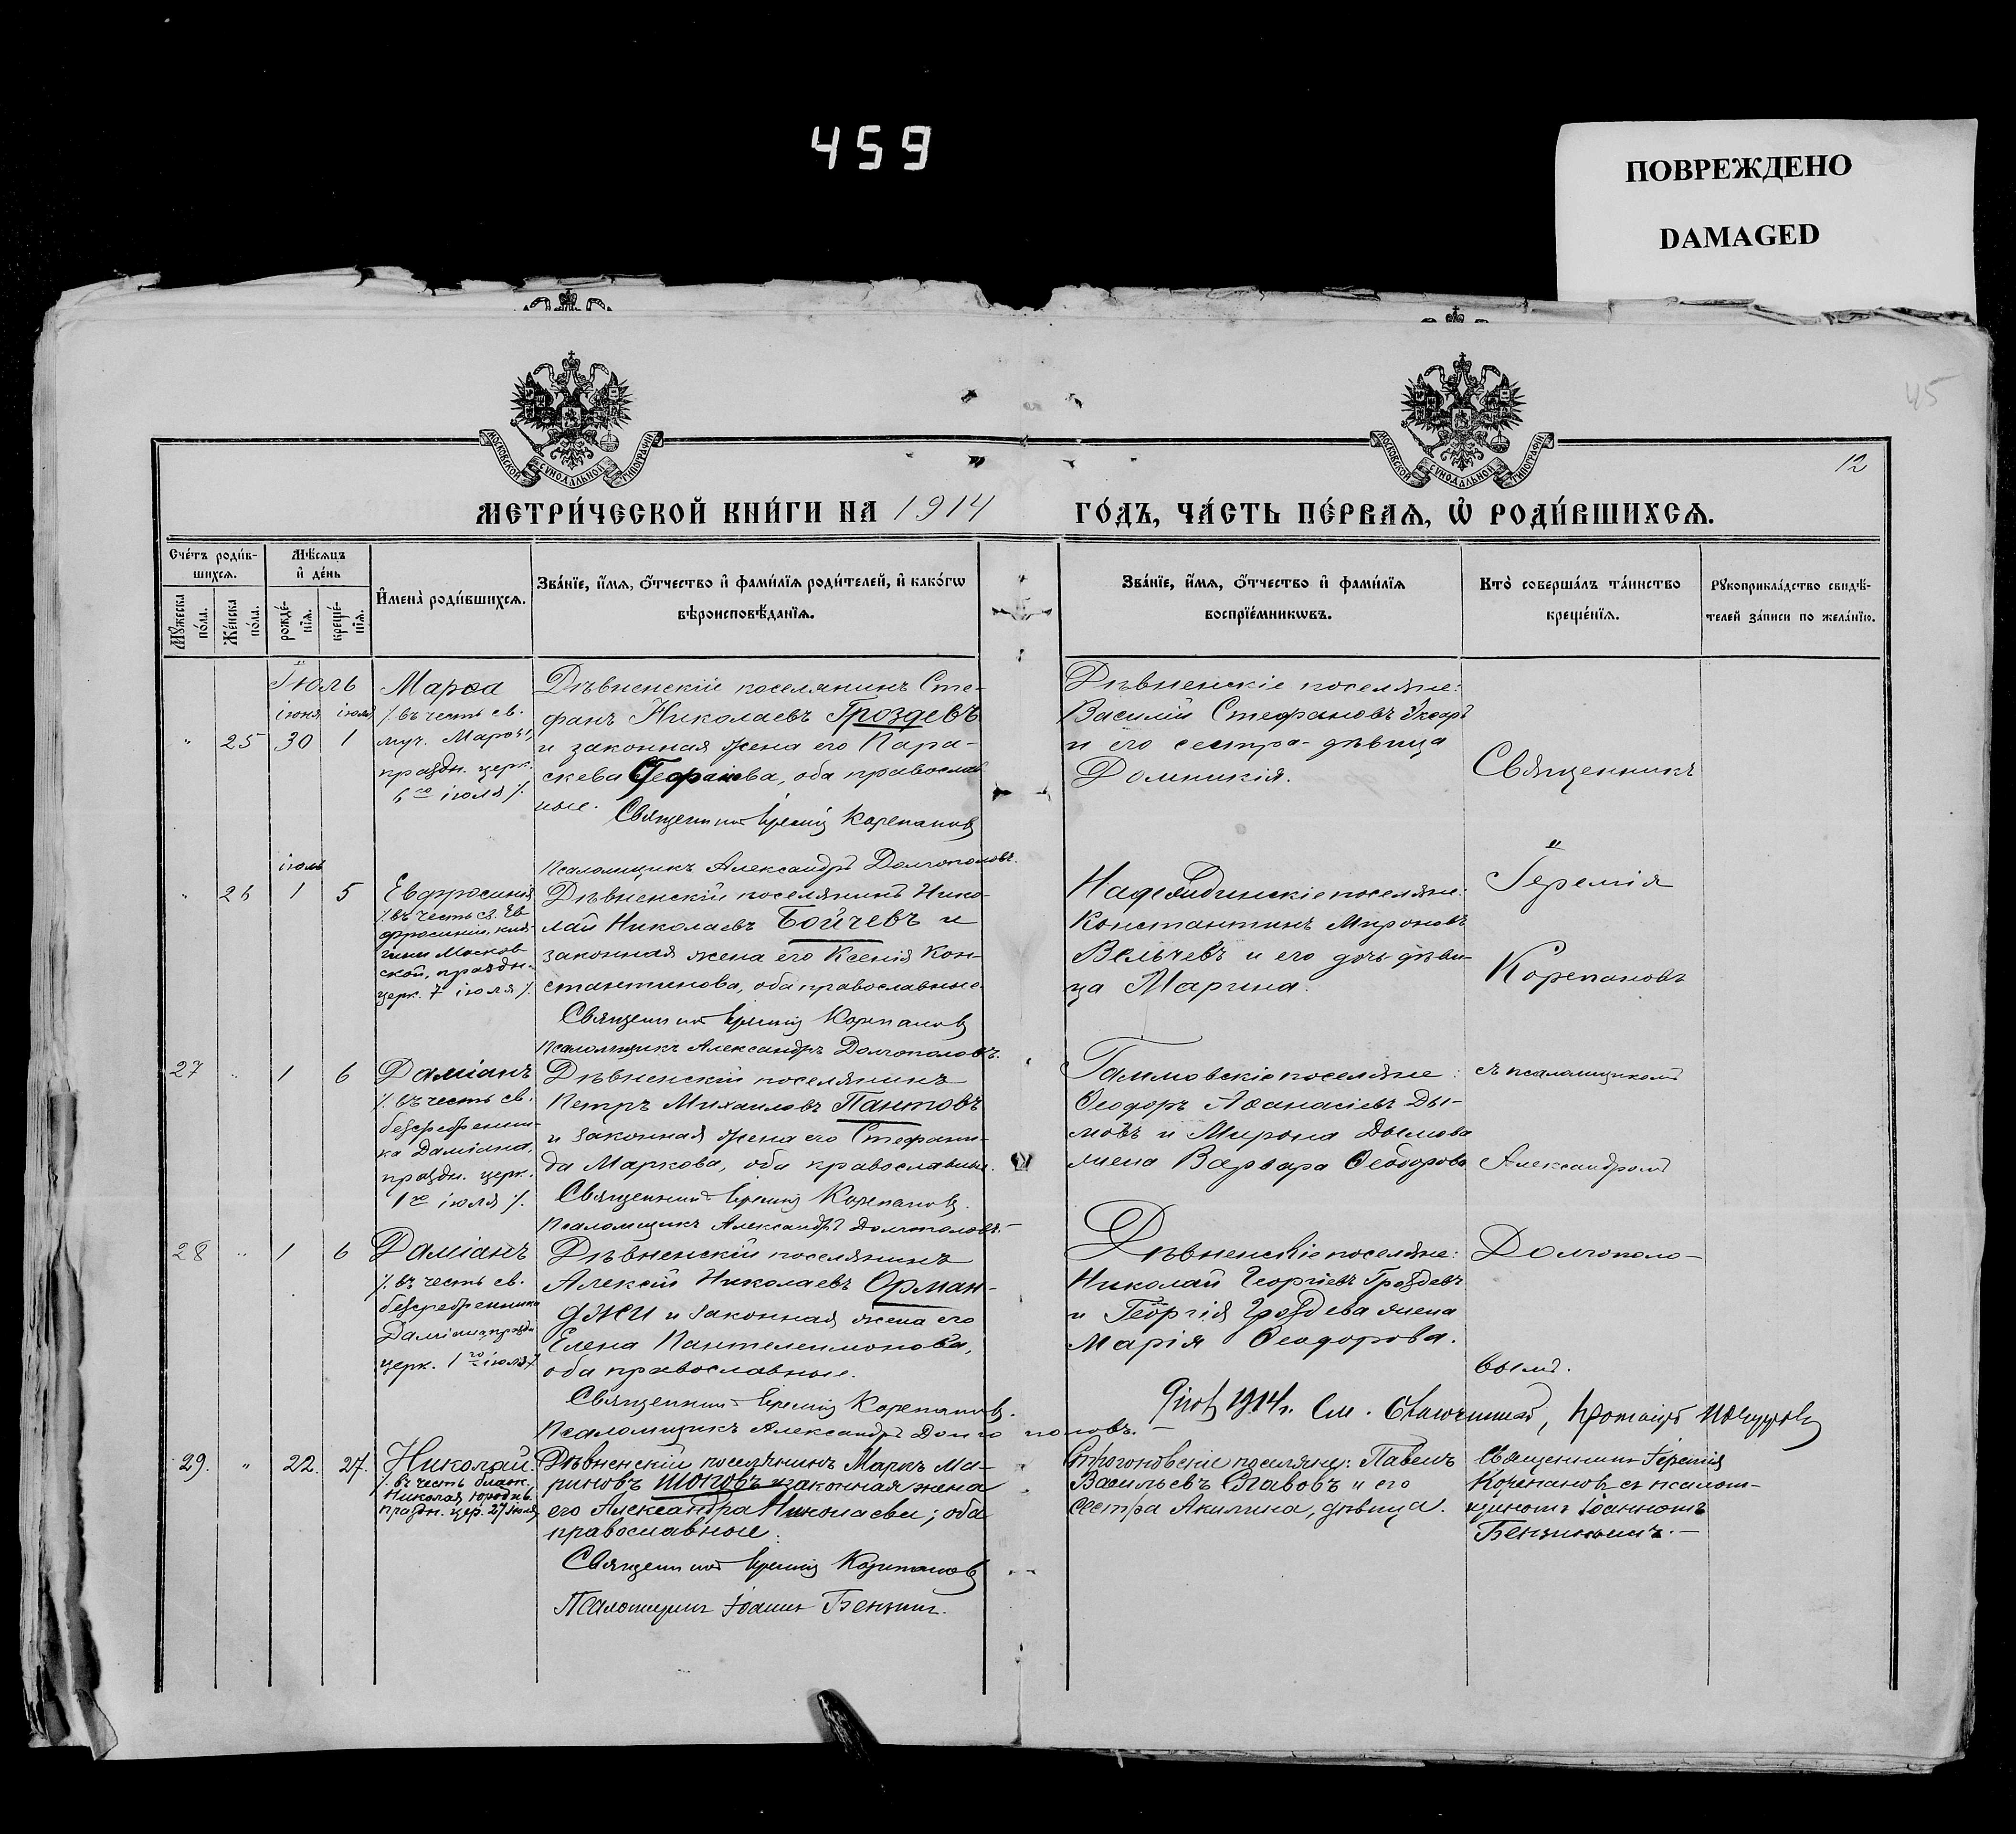 459
ПОВРЕЖДЕНО
DAMAGED
45
12
МОСКОВСКОЙ СѴНОДАЛЬНОЙ ТИПОГРАФІИ
МОСКОВСКОЙ СѴНОДАЛЬНОЙ ТИПОГРАФІИ
МЕТРИ́ЧЕСКОЙ КНИ́ГИ НА 1914 ГО́ДЪ, ЧА́СТЬ ПЕ́РВАѦ, Ѽ РОДИ́ВШИХСѦ.
Сче́тъ роди́в-
шихсѧ.
Мꙋ́жеска по́ла.
Же́нска по́ла.
Мѣ́сѧцъ
и҆ де́нь
рожде́-
нїѧ.
креще́-
нїѧ.
И҆мена̀ роди́вшихсѧ.
Зва́нїе, и҆́мѧ, ѻ҆́тчество и҆ фами́лїѧ роди́телей, и҆ како́гѡ
вѣроисповѣ́данїѧ.
Зва́нїе, и҆́мѧ, ѻ҆́тчество и҆ фами́лїѧ
воспрїе́мникѡвъ.
Кто̀ соверша́лъ та́инство
креще́нїѧ.
Рꙋкоприкла́дство свидѣ́-
телей за́писи по жела́нїю.
Іюль
іюня іюля
" 25 30 1
Марѳа
/. въ честь св.
муч. Марѳы,
праздн. церк.
6го іюля /.
Дѣвненскій поселянинъ Сте-
фанъ Николаевъ Гроздевъ
и законная жена его Пара-
скева Стефанова, оба православ-
ные.
Священникъ Іеремія Корепановъ
Псаломщикъ Александръ Долгополовъ.
Дѣвненскіе поселяне:
Василій Стефановъ
и его сестра-дѣвица
Домникія.
Священникъ
Іеремія
Корепановъ
съ псаломщикомъ
Александромъ
Долгополо-
вымъ.
іюль
" 26 1 5
Евфросинія
/. въ честь св. Ев-
фросиніи, кня-
гини Москов-
ской, праздн.
церк. 7 іюля /.
Дѣвненскій поселянинъ Нико-
лай Николаевъ Бойчевъ и
законная жена его Ксенія Кон-
стантинова, оба православные
Священникъ Іеремія Корепановъ
Псаломщикъ Александръ Долгополовъ.
поселяне:
Константинъ Мироновъ
Вельчевъ и его дочь дѣви-
ца Марина.
27 " 1 6
Даміанъ
/. въ честь св.
безсребренни-
ка Даміана,
праздн. церк.
1го іюля /.
Дѣвненскій поселянинъ
Петръ Михаиловъ Пантовъ
и законная жена его Стефани-
да Маркова, оба православные.
Священникъ Іеремія Корепановъ.
Псаломщикъ Александръ Долгополовъ.
поселяне:
Ѳеодоръ Аѳанасіевъ Ды-
мовъ и Мирона Дымова
жена Варвара Ѳеодорова
28 " 1 6
Даміанъ
/. въ честь св.
безсребренника
Даміана, праздн.
церк. 1го іюля /.
Дѣвненскій поселянинъ
Алексій Николаевъ Орман-
джи и законная жена его
Елена Пантелеимонова,
оба православные.
Священникъ Іеремія Корепановъ.
Псаломщикъ Александръ Долгополовъ.
Дѣвненскіе поселяне:
Николай Георгіевъ Гроздевъ
и Георгія Гроздева жена
Марія Ѳеодорова.
1914 г. См.
29. " 22. 27.
Николай.
/. въ честь блаж.
Николая юродив.
праздн. цер. 27 іюля
Дѣвненскій поселянинъ Маркъ Ма-
риновъ Шоповъ и законная жена
его Александра Николаева; оба
православные.
Священникъ Іеремія Корепановъ
Псаломщикъ Іоаннъ Бензинъ.
Строгоновскіе поселяне: Павелъ
Васильевъ Славовъ и его
сестра Акилина, дѣвица.
Священникъ Іеремія
Корепановъ съ псалом-
щикомъ Іоанномъ